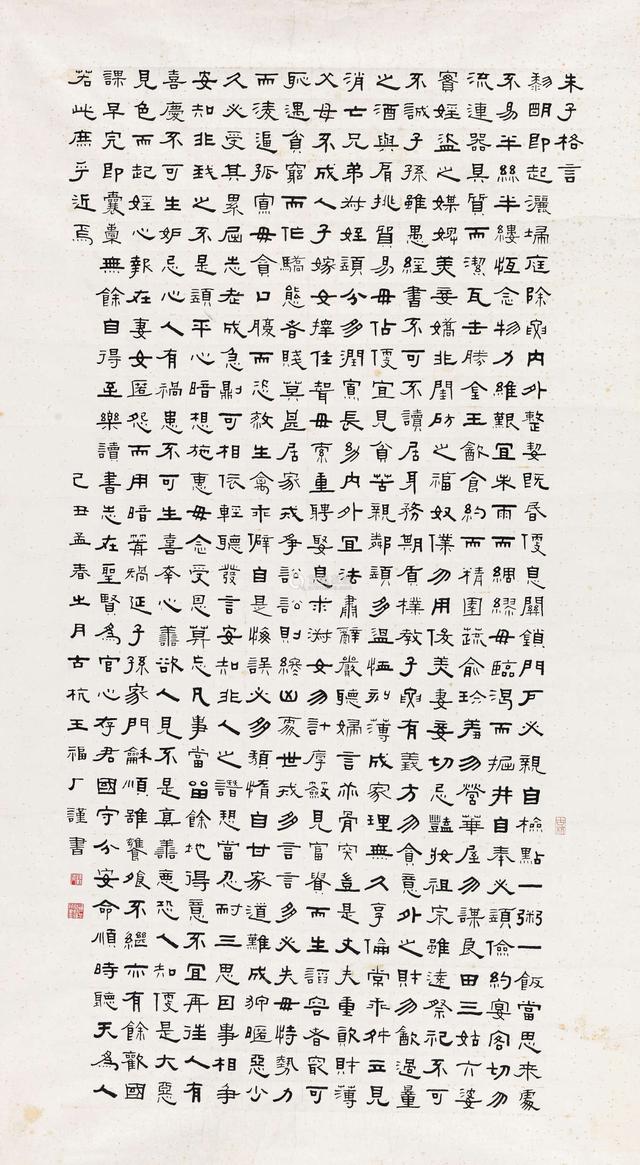 朱子格言
黎明即起灑埽庭除要內外整絜既昏便息關鎖門戶必親自檢點一粥一飯當思來處
不易半絲半縷恆念物力維艱宜未雨而綢繆毋臨渴而掘井自奉必須儉約宴客切勿
流連器具質而潔瓦缶勝金玉飲食約而精園蔬俞珍羞勿營華屋勿謀良田三姑六婆
實婬盜之媒婢美妾嬌非閨房之福奴僕勿用俊美妻妾切忌豔妝祖宗雖遠祭祀不可
不誠子孫雖愚經書不可不讀居身務期質樸教子要有義方勿貪意外之財勿飲過量
之酒與肩挑貿易毋佔便宜見貧苦親鄰須多溫恤刻薄成家理無久享倫常乖舛立見
消亡兄弟叔姪須分多潤寡長幼內外宜法肅辭嚴聽婦言乖骨肉豈是丈夫重貲財薄
父母不成人子嫁女擇佳婿毋索重聘娶息求淑女勿計厚奩見富貴而生諂容者最可
恥遇貧窮而作驕態者賤莫甚居家戒爭訟訟則終凶處世戒多言言多必失毋恃勢力
而淩逼孤寡毋貪口腹而恣殺生禽乖僻自是悔誤必多頹惰自甘家道難成狎暱惡少
久必受其累屈志老成急則可相依輕聽發言安知非人之譖愬當忍耐三思因事相爭
安知非我之不是須平心暗想施惠毋念受恩莫忘凡事當留餘地得意不宜再往人有
喜慶不可生妒忌心人有禍患不可生喜幸心善欲人見不是真善惡恐人知便是大惡
見色而起婬心報在妻女匿怨而用暗箭禍延子孫家門龢順雖饔飧不繼亦有餘歡國
課早完即囊橐無餘自得至樂讀書志在聖賢為官心存君國守分安命順時聽天為人
若此庶乎近焉 己丑孟春之月古杭王福厂謹書